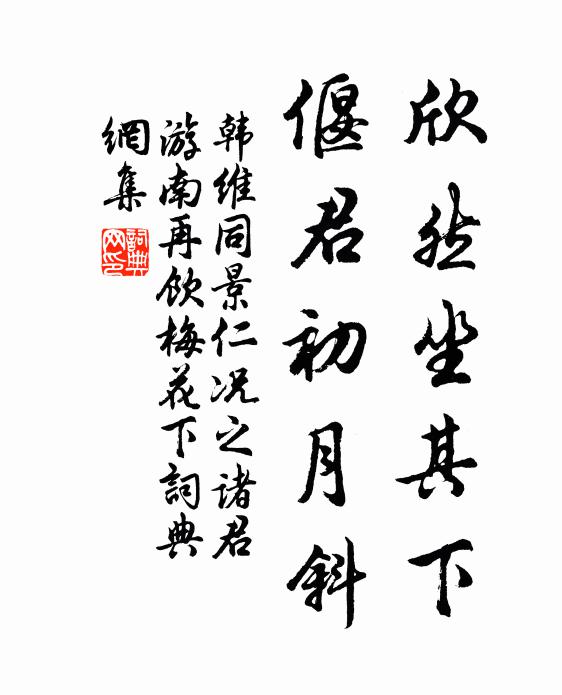 欣然坐其下
偃君初月斜
韩维同景仁况之诸君
游南再饮梅花下詞典
網集
詞典
网印